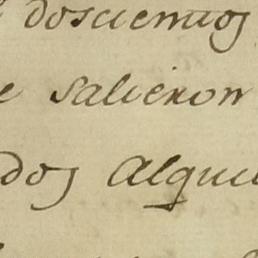 doscientos
e salieron
dos Alqui